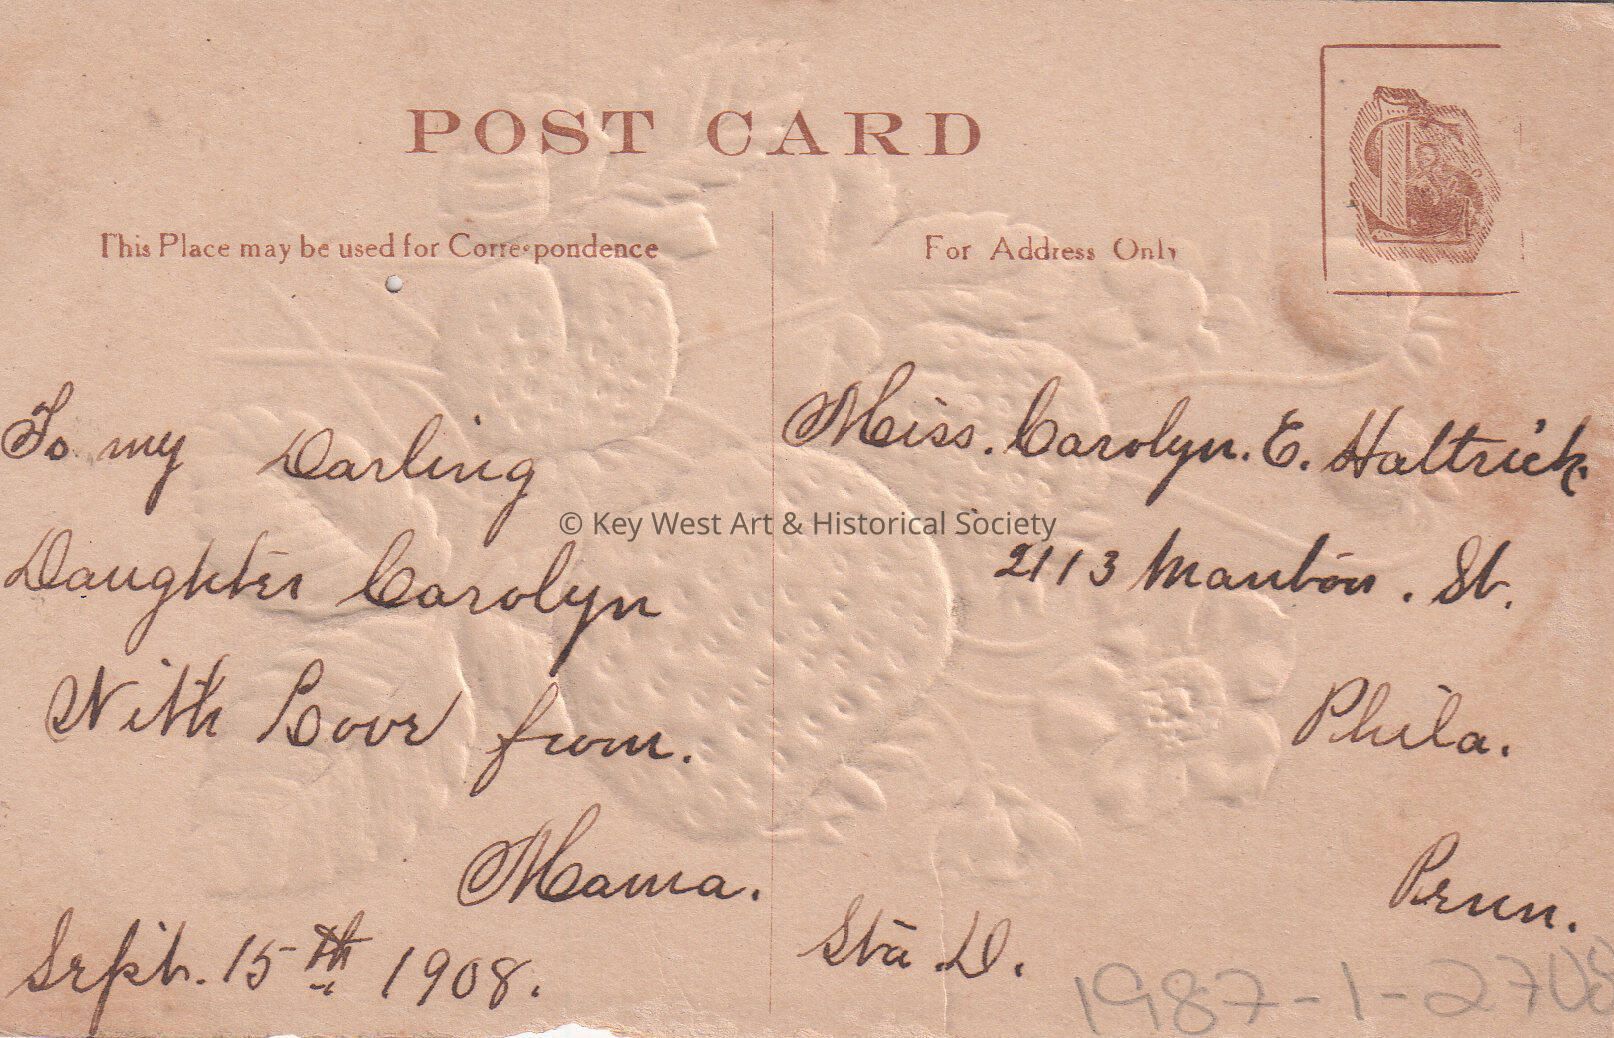 POST CARD
This Place may be used for Correspondence
For Address Only
To my Darling
Daughter Carolyn
With Love from.
Mama.
Sept. 15th 1908.
Miss. Carolyn. E. Haltrick.
2113 Manton. St.
Phila.
Penn.
Sta. D.
© Key West Art & Historical Society
1987-1-2708